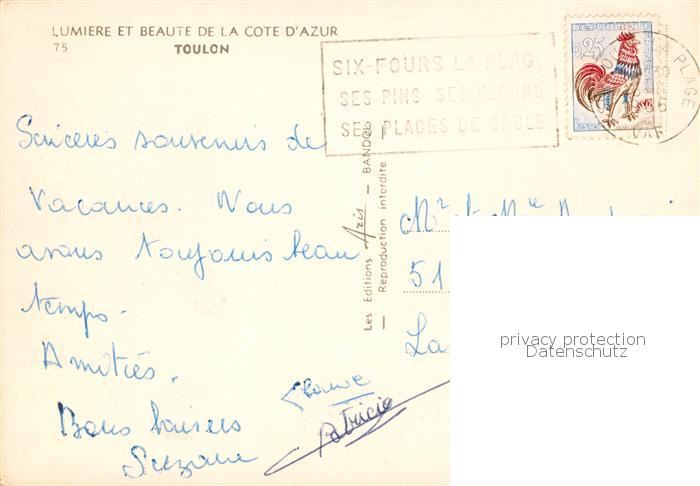 LUMIERE ET BEAUTE DE LA COTE D'AZUR
75 TOULON
SIX-FOURS LA PLAGE
SES PINS SES FLEURS
SES PLAGES DE SABLE
REPUBLIQUE
0,25
PLAGE
VAR
Sincères souvenirs de
Vacances. Nous
avons toujours beau
temps.
Amitiés.
Bons baisers
Suzanne
Patricia
Les Editions Aris — BANDOL
Reproduction interdite
51
La
privacy protection
Datenschutz